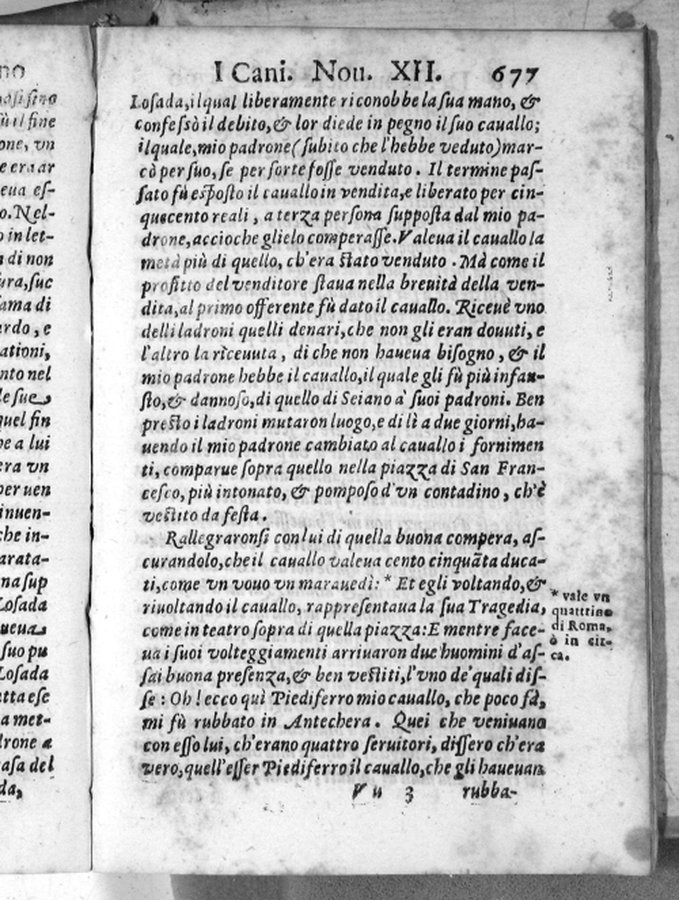 I Cani. Nou. XII. 677
Losada, il qual liberamente riconobbe la sua mano, &
confessò il debito, & lor diede in pegno il suo cauallo;
ilquale, mio padrone (subito che l'hebbe veduto) mar-
cò per suo, se per sorte fosse venduto. Il termine pas-
sato fù esposto il cauallo in vendita, e liberato per cin-
quecento reali, a terza persona supposta dal mio pa-
drone, accioche glielo comperasse. Valeua il cauallo la
metà più di quello, ch'era stato venduto. Mà come il
profitto del venditore staua nella breuità della ven-
dita, al primo offerente fù dato il cauallo. Riceuè vno
delli ladroni quelli denari, che non gli eran douuti, e
l'altro la riceuuta, di che non haueua bisogno, & il
mio padrone hebbe il cauallo, il quale gli fù più infau-
sto, & dannoso, di quello di Seiano a' suoi padroni. Ben
presto i ladroni mutaron luogo, e di lì a due giorni, ha-
uendo il mio padrone cambiato al cauallo i fornimen
ti, comparue sopra quello nella piazza di San Fran-
cesco, più intonato, & pomposo d'vn contadino, ch'è
vestito da festa.
Rallegraronsi con lui di quella buona compera, as-
curandolo, che il cauallo valeua cento cinquãta duca-
ti, come vn vouo vn marauedì: * Et egli voltando, &
riuoltando il cauallo, rappresentaua la sua Tragedia,
come in teatro sopra di quella piazza: E mentre face-
ua i suoi volteggiamenti arriuaron due huomini d'as-
sai buona presenza, & ben vestiti, l'vno de' quali dis-
se: Oh! ecco quì Piediferro mio cauallo, che poco fà,
mi fù rubbato in Antechera. Quei che veniuano
con esso lui, ch'erano quattro seruitori, dissero ch'era
vero, quell'esser Piediferro il cauallo, che gli haueuan
V u 3 rubba-
* vale vn
quattrino
di Roma,
ò in cir-
ca.
no
fù il fine
one, vn
e era ar
eua es-
o. Nel-
o in let-
a di non
ura, suc
ama di
ardo, e
ationi,
nto nel
le sue
quel fin
be a lui
era vn
per uen
inuen-
che in-
arata-
na sup
Losada
ueua
suo pu
Losada
tta ese
a met-
drone a
casa del
da,